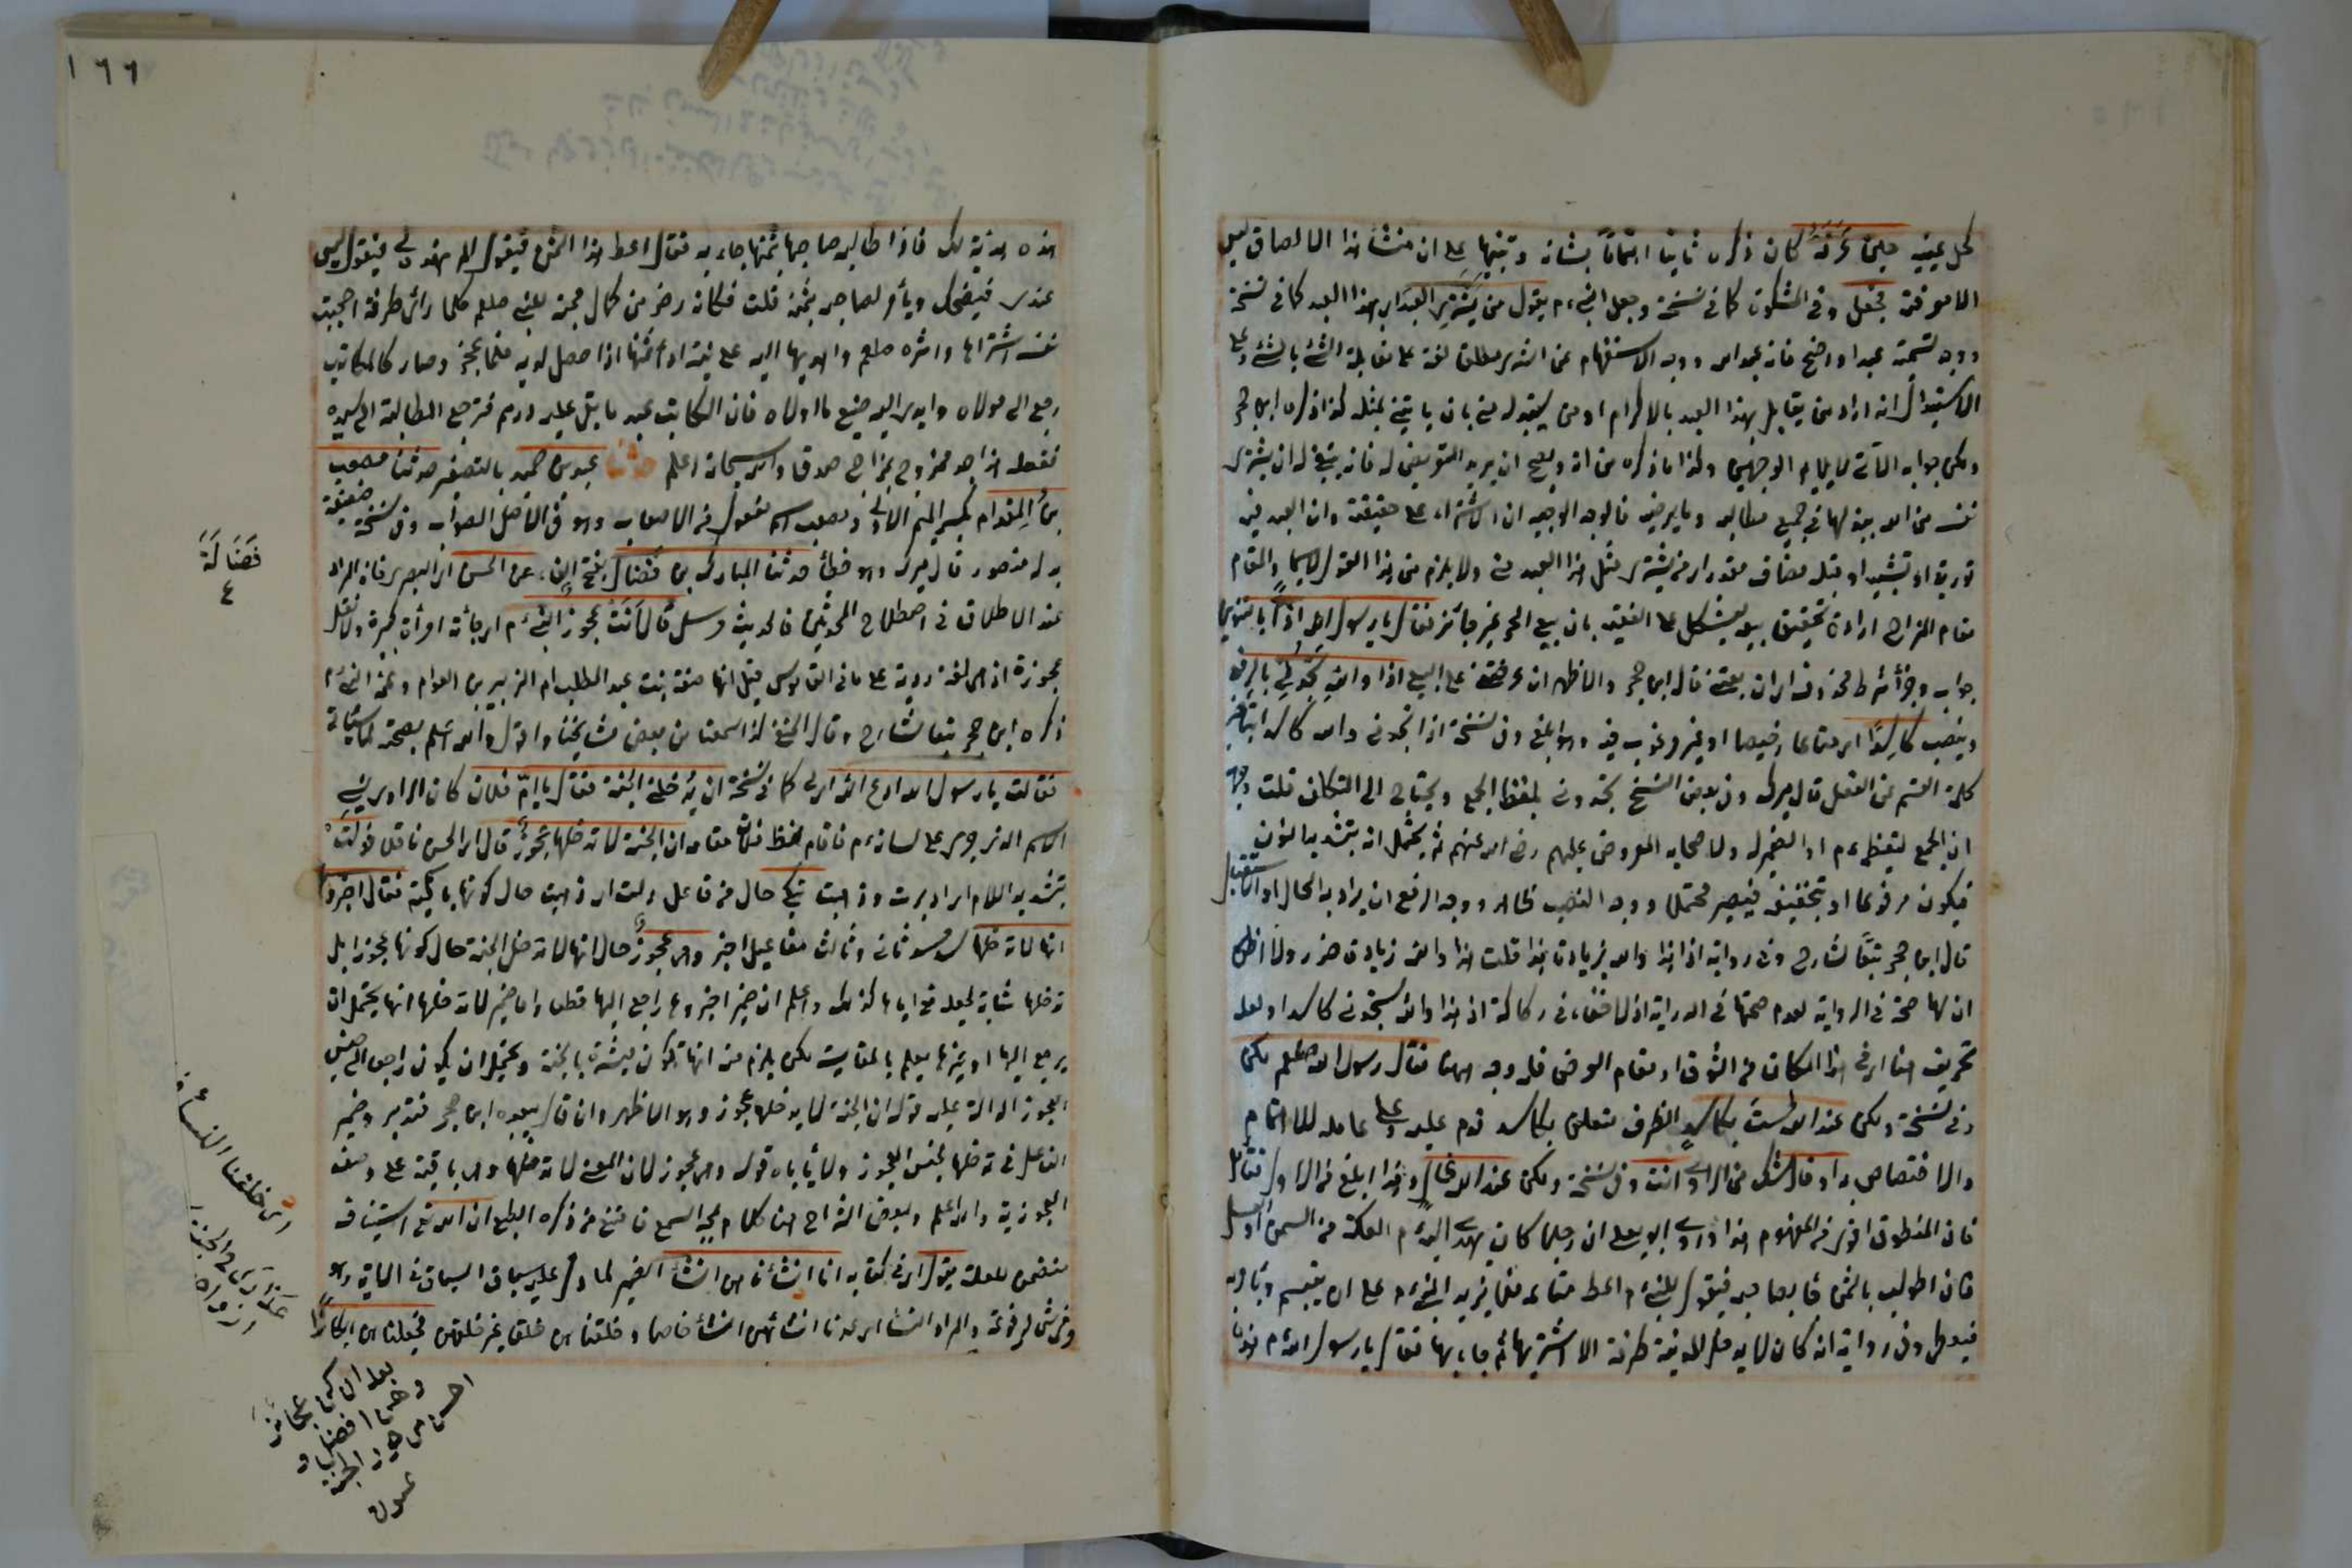 لكل يمينه حين عرفه كان ذكره ثانيا اهتماما بشانه وتنبيها على ان منشأ هذا الالصاق ليس
الا معرفته فجعل وفي المشكوة كما في نسخة وجعل النبي ءم يقول من يشتري العبد اي هذا العبد كما في نسخة
ووجه تسمية عبدا واضح فانه عبد الله ووجه الاستفهام عن الشراء يطلق لغة على مقابلة الشئ بالشئ وعلى
الاستبدال انه اراد من يقابل هذا العبد بالاكرام او من يستبدله مني بان ياتيني بمثله كذا ذكره ابن حجر
ولكن جوابه الآتي لا يلايم الوجهين وكذا ما ذكره من انه ويصح ان يريد التعويض له فانه ينبغي له ان يشتري
نفسه من الله ببذلها في جميع مطالبه وما يرضيه فالوجه الوجيه ان الاشتراء على حقيقته وان العبد فيه
تورية او تشبيه او قبله مضاف مقدر اي من يشتري مثل هذا العبد مني ولا يلزم من هذا القول لاسيما والمقام
مقام المزاح ارادة تحقيق بيعه ليشكل على الفقيه بان بيع الحر غير جائز فقال يا رسول الله اذا بالتنوين
جواب وجزاء شرط محذوف اي ان بعتني قال ابن حجر والاظهر ان عرضتني على البيع اذا والله تجدني بالرفع
وينصب كاسدا اي متاعا رخيصا او غير مرغوب فيه وهو ابلغ وفي نسخة اذا تجدني والله كاسدا بتاخير
كلمة القسم عن الفعل قال ميرك وفي بعض النسخ تجدوني بلفظ الجمع ويحتاج الى التكلف قلت وجهه
ان الجمع لتعظيمه ءم او الضمير له ولاصحابه المعروض عليهم رضي الله عنهم ثم يحتمل انه بتشديد النون
فيكون مرفوعا او بتخفيفه فيصير محتملا ووجه النصب ظاهر ووجه الرفع ان يراد به الحال او الاستقبال
قال ابن حجر تبعا لشارح وفي رواية اذا هذا والله بزيادة هذا قلت هذا والله زيادة ضرر ولا اظن
ان لها صحة في الرواية لعدم صحتها في الدراية اذ لا خفاء في ركاكة اذا هذا والله تجدني كاسدا ولعله
تحريف هنا اي في هذا المكان من السوق او مقام العرض فله وجه ههنا فقال رسول الله صلعم لكن
وفي نسخة ولكن عند الله لست بكاسد الظرف متعلق بكاسد قدم عليه وعلى عامله للاهتمام
والاختصاص به او قال شك من الراوي انت وفي نسخة ولكن عند الله غال وهذا ابلغ من الاول فتأمل
فان المنطوق اقوى من المفهوم هذا وروى ابو يعلى ان رجلا كان يهدي اليه ءم العكة من السمن او العسل
فان اطولب بالثمن جاء بصاحبه فيقول للنبي ءم اعط متاعه فما يزيد النبي ءم على ان يتبسم ويامر به
فيعطى وفي رواية انه كان لا يدخل المدينة طرفة الا اشتريها ثم جاء بها فقال يا رسول الله ءم هذه
١٦٦
هذه هدية لك فاذا طالبه صاحبها بثمنها جاء به فقال اعط هذا الثمن فيقول الم تهده لي فيقول ليس
عندي فيضحك ويأمر لصاحبه بثمنه قلت فكانه رض من كمال محبته للنبي صلعم كلما رأى طرفة اعجبت
نفسه اشتراها وآثره صلعم واهديها اليه على نية اداء ثمنها اذا حصل لديه فلما عجز وصار كالمكاتب
رجع الى مولاه وابدى اليه صنيع ما اولاه فان المكاتب عبد ما بقي عليه درهم فترجع المطالبة الى سيده
ففعله هذا جد ممزوج بمزاح صدق والله سبحانه اعلم حدثنا عبد بن حميد بالتصغير حدثنا مصعب
بن المقدام بكسر الميم الاولى ومصعب اسم مفعول من الاصعاب وهو في الاصل الصواب وفي نسخة ضعيفة
بدله منصور قال ميرك وهو خطأ حدثنا المبارك بن فضال بفتح الفاء عن الحسن اي البصري فانه المراد
عند الاطلاق في اصطلاح المحدثين فالحديث مرسل قال اتت عجوز النبي ءم اي جاءته امرأة كبيرة ولا تقل
عجوزة اذ هي لغة ردية على ما في القاموس قيل انها صفية بنت عبد المطلب ام الزبير بن العوام وعمة النبي ءم
ذكره ابن حجر تبعا لشارح وقال الحنفي كذا سمعنا من بعض مشايخنا واقول والله اعلم بصحته لما سيأتي
فقالت يا رسول الله ادع الله اي لي كما في نسخة ان يدخلني الجنة فقال يا ام فلان كان الراوي نسي
الاسم الذي جرى على لسانه ءم فاقام لفظ فلان مقامه ان الجنة لا تدخلها عجوز قال اي الحسن ناقلا فولت
بتشديد اللام اي ادبرت وذهبت تبكي حال من فاعل ولت اي ذهبت حال كونها باكية فقال اخبروها
انها لا تدخلها سد مسد ثاني وثالث مفاعيل اخبر وهي عجوز حال اي انها لا تدخل الجنة حال كونها عجوزا بل
تدخلها شابة لجعله تعالى اياها كذلك واعلم ان ضمير اخبروها راجع اليها قطعا واما ضمير لا تدخلها انها يحتمل ان
يرجع اليها او غيرها يعلم بالمقايسة لكن يلزم منه انها تكون مبشرة بالجنة ويحتمل ان يكون راجعا الى جنس
العجوز الدالة عليه قوله ان الجنة لا يدخلها عجوز وهو الاظهر وان قال ببعده ابن حجر فتدبر وضمير
الفاعل في تدخلها لجنس العجوز ولا يأباه قوله وهي عجوز لان المعنى لا تدخلها وهي باقية على وصف
العجوزية والله اعلم ولبعض الشراح هنا كلام يمجه السمع فامتنع من ذكره الطبع ان الله تعالى استيناف
متضمن للعلة يقول اي في كتابه انا انشأناهن انشاء الضمير لما دل عليه سياق السباق في الاية وهو
وفرش مرفوعة والمراد النساء اي عدنا انشائهن انشاء خاصا وخلقناهن خلقا غير خلقهن فجعلناهن ابكارا
فضالة
٤
اي خلقنا النساء
عذارى في الجنة
ازواه
بعد ان كن عجائز
وهن افضل و
احسن من حور الجنة
عبدل